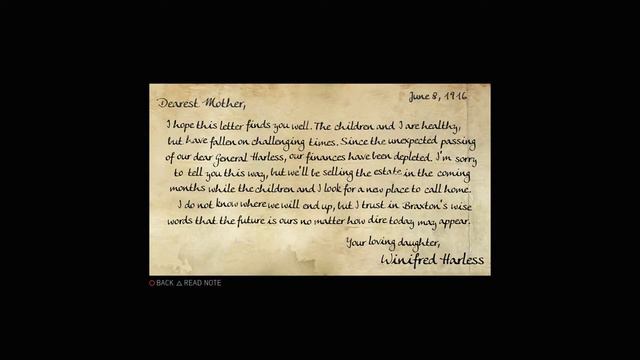 June 8, 1916
Dearest Mother,
I hope this letter finds you well. The children and I are healthy,
but have fallen on challenging times. Since the unexpected passing
of our dear General Harless, our finances have been depleted. I'm sorry
to tell you this way, but we'll be selling the estate in the coming
months while the children and I look for a new place to call home.
I do not know where we will end up, but I trust in Braxton's wise
words that the future is ours no matter how dire today may appear.
Your loving daughter,
Winifred Harless
BACK READ NOTE